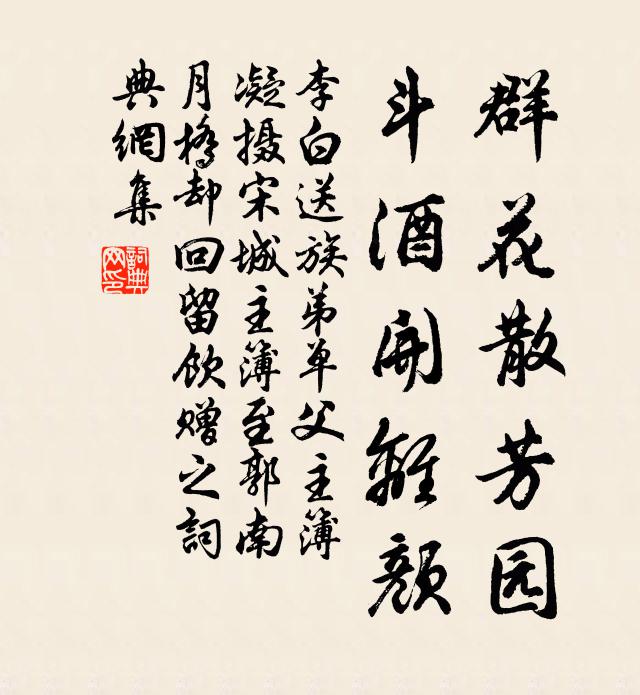 群花散芳园
斗酒開離顔
李白送族弟单父主簿
凝摄宋城主簿至郭南
月橋却回留饮赠之詞
典網集
詞典网印